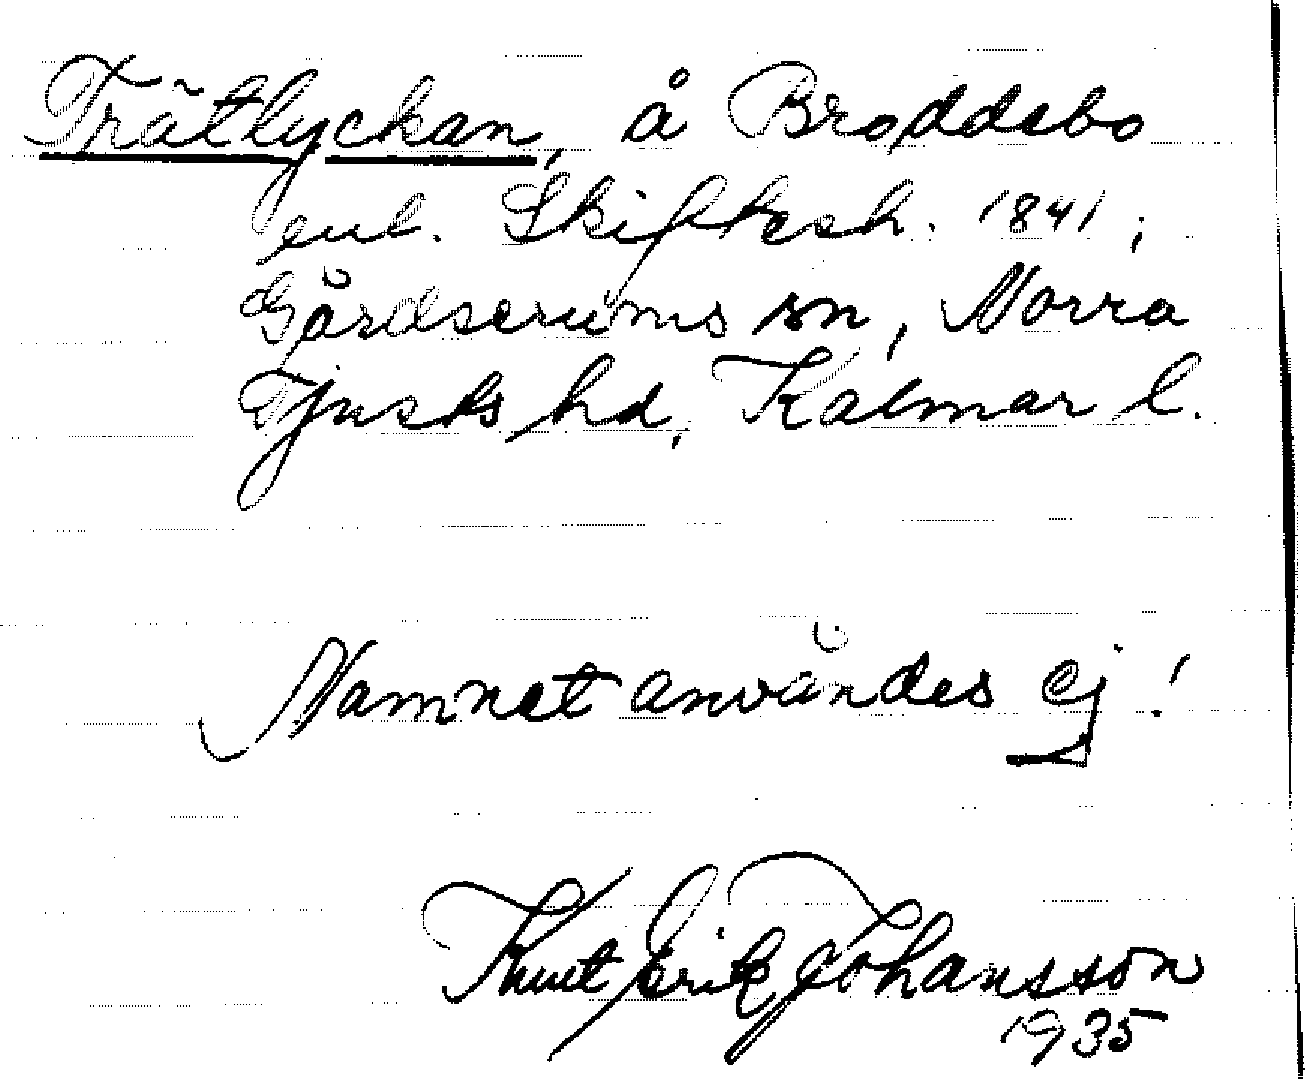 Trätlyckan, å Broddebo
enl. Skiftesh. 1841;
Gärdserums sn, Norra
Tjusts hd, Kalmar l.
Namnet användes ej!
Knut Erik Johansson
1935